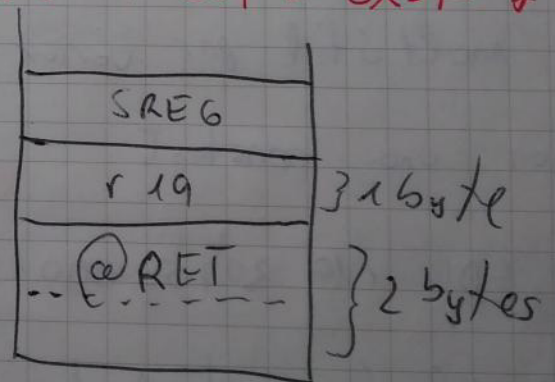 SREG
r 19 } 1 byte
@RET } 2 bytes